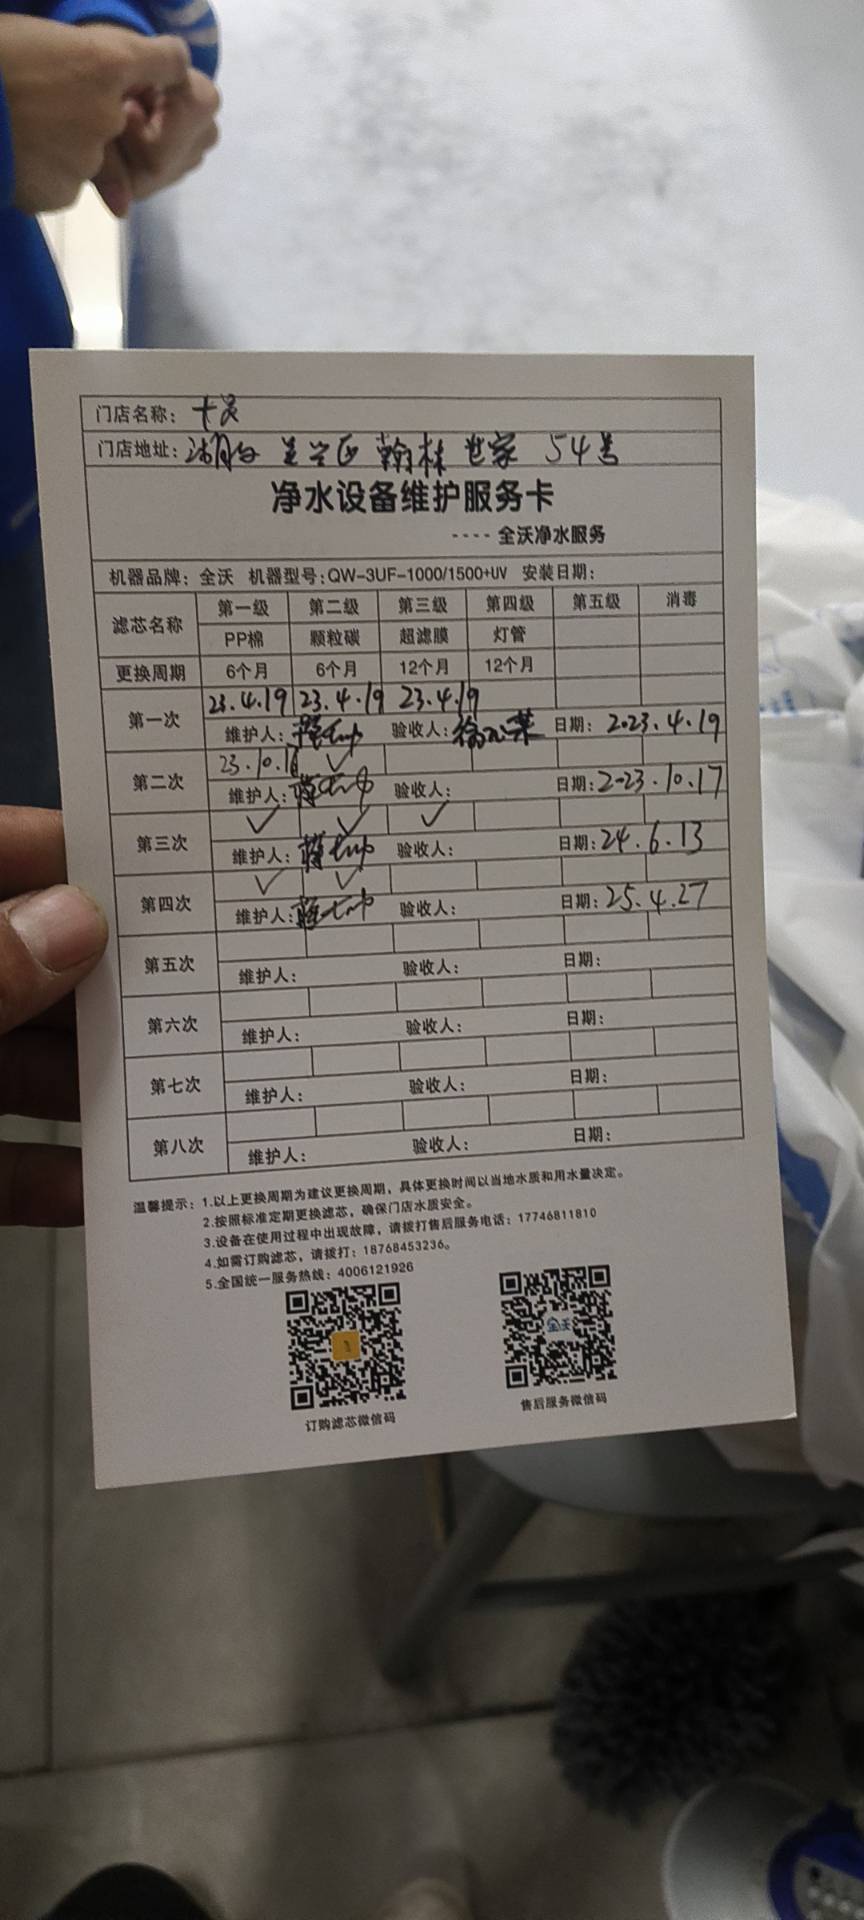 门店名称：
门店地址：湖州 吴兴区 翰林世家 54号
净水设备维护服务卡
----全沃净水服务
机器品牌：全沃 机器型号：QW-3UF-1000/1500+UV 安装日期：
滤芯名称 第一级 第二级 第三级 第四级 第五级 消毒
PP棉 颗粒碳 超滤膜 灯管
更换周期 6个月 6个月 12个月 12个月
第一次 23.4.19 23.4.19 23.4.19
维护人： 验收人： 日期：2023.4.19
第二次 23.10.1 ✓
维护人： 验收人： 日期：2023.10.17
第三次 ✓ ✓ ✓
维护人： 验收人： 日期：24.6.13
第四次 ✓ ✓
维护人： 验收人： 日期：25.4.27
第五次
维护人： 验收人： 日期：
第六次
维护人： 验收人： 日期：
第七次
维护人： 验收人： 日期：
第八次
维护人： 验收人： 日期：
温馨提示：1.以上更换周期为建议更换周期，具体更换时间以当地水质和用水量决定。
2.按照标准定期更换滤芯，确保门店水质安全。
3.设备在使用过程中出现故障，请拨打售后服务电话：17746811810
4.如需订购滤芯，请拨打：18768453236。
5.全国统一服务热线：4006121926
全沃
订购滤芯微信码 售后服务微信码